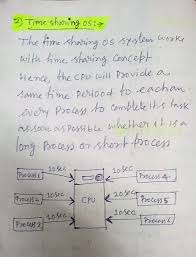 2) Time sharing OS:→
The time sharing OS system works
with time sharing concept
Hence, the CPU will Provide a
same time Period to each an
every Process to complete its task
as soon as Possible whether it is a
long Process or short process
Process 1 10 sec 10 sec Process 4
Process 2 10 sec CPU 10 sec Process 5
Process 3 10 sec 10 sec Process 6